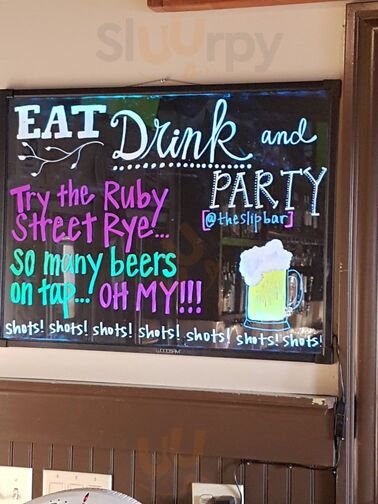 Slurpy
EAT Drink and
PARTY
[@theslipbar]
Try the Ruby
Street Rye...
so many beers
on tap... OH MY!!!
shots! shots! shots! shots! shots! shots! shots!
WOODSAM